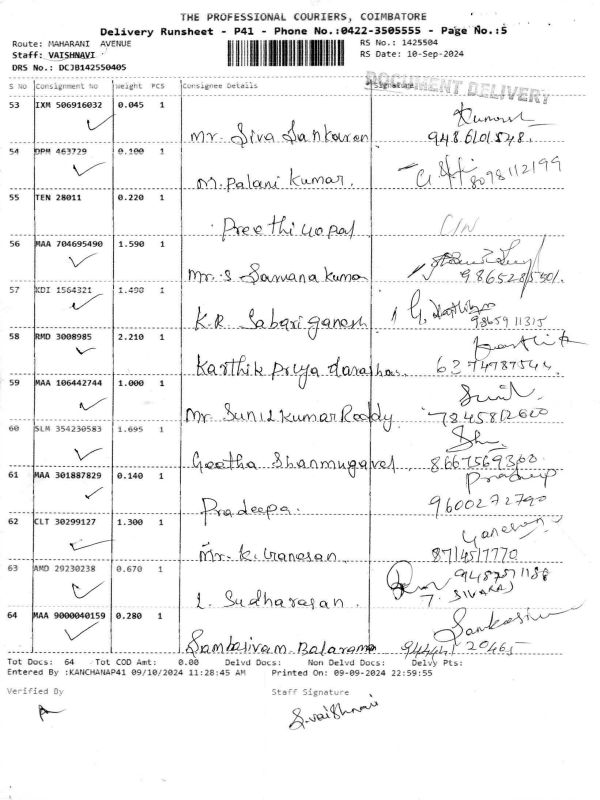 THE PROFESSIONAL COURIERS, COIMBATORE
Delivery Runsheet - P41 - Phone No.:0422-3505555 - Page No.:5
Route: MAHARANI AVENUE
RS No.: 1425504
Staff: VAISHNAVI
RS Date: 10-Sep-2024
DRS No.: DCJB142550405
DOCUMENT DELIVERY
S No Consignment No Weight PCS Consignee Details Signature
53 IXM 506916032 0.045 1
Mr. Siva Sankaran 9486101528.
54 DPM 463729 0.100 1
M. Palani Kumar. 8098112199
55 TEN 28011 0.220 1
Preethi Gopal C/N
56 MAA 704695490 1.590 1
Mr. S Saravana Kumar 9865285501.
57 KDI 1564321 1.490 1
K.R. Sabari ganesh 9865911315
58 RMD 3008985 2.210 1
Karthik
Karthik Priya 6374787544
59 MAA 106442744 1.000 1
Sunil
Mr Sunil Kumar Reddy 7845812600
60 SLM 354230583 1.695 1
Geetha Shanmugavel. 8667569360
61 MAA 301887829 0.140 1
Pradeep
Pradeepa. 9600272790
62 CLT 30299127 1.300 1
Ganesan
Mr. K. Ganesan. 8714517770
63 AMD 29230238 0.670 1
T. SIVARAJ
L. Sudharasan.
64 MAA 9000040159 0.280 1
Sambasivam Balaraman
Tot Docs: 64 Tot COD Amt: 0.00 Delvd Docs: Non Delvd Docs: Delvy Pts:
Entered By :KANCHANAP41 09/10/2024 11:28:45 AM Printed On: 09-09-2024 22:59:55
Verified By Staff Signature
S.vaishnavi